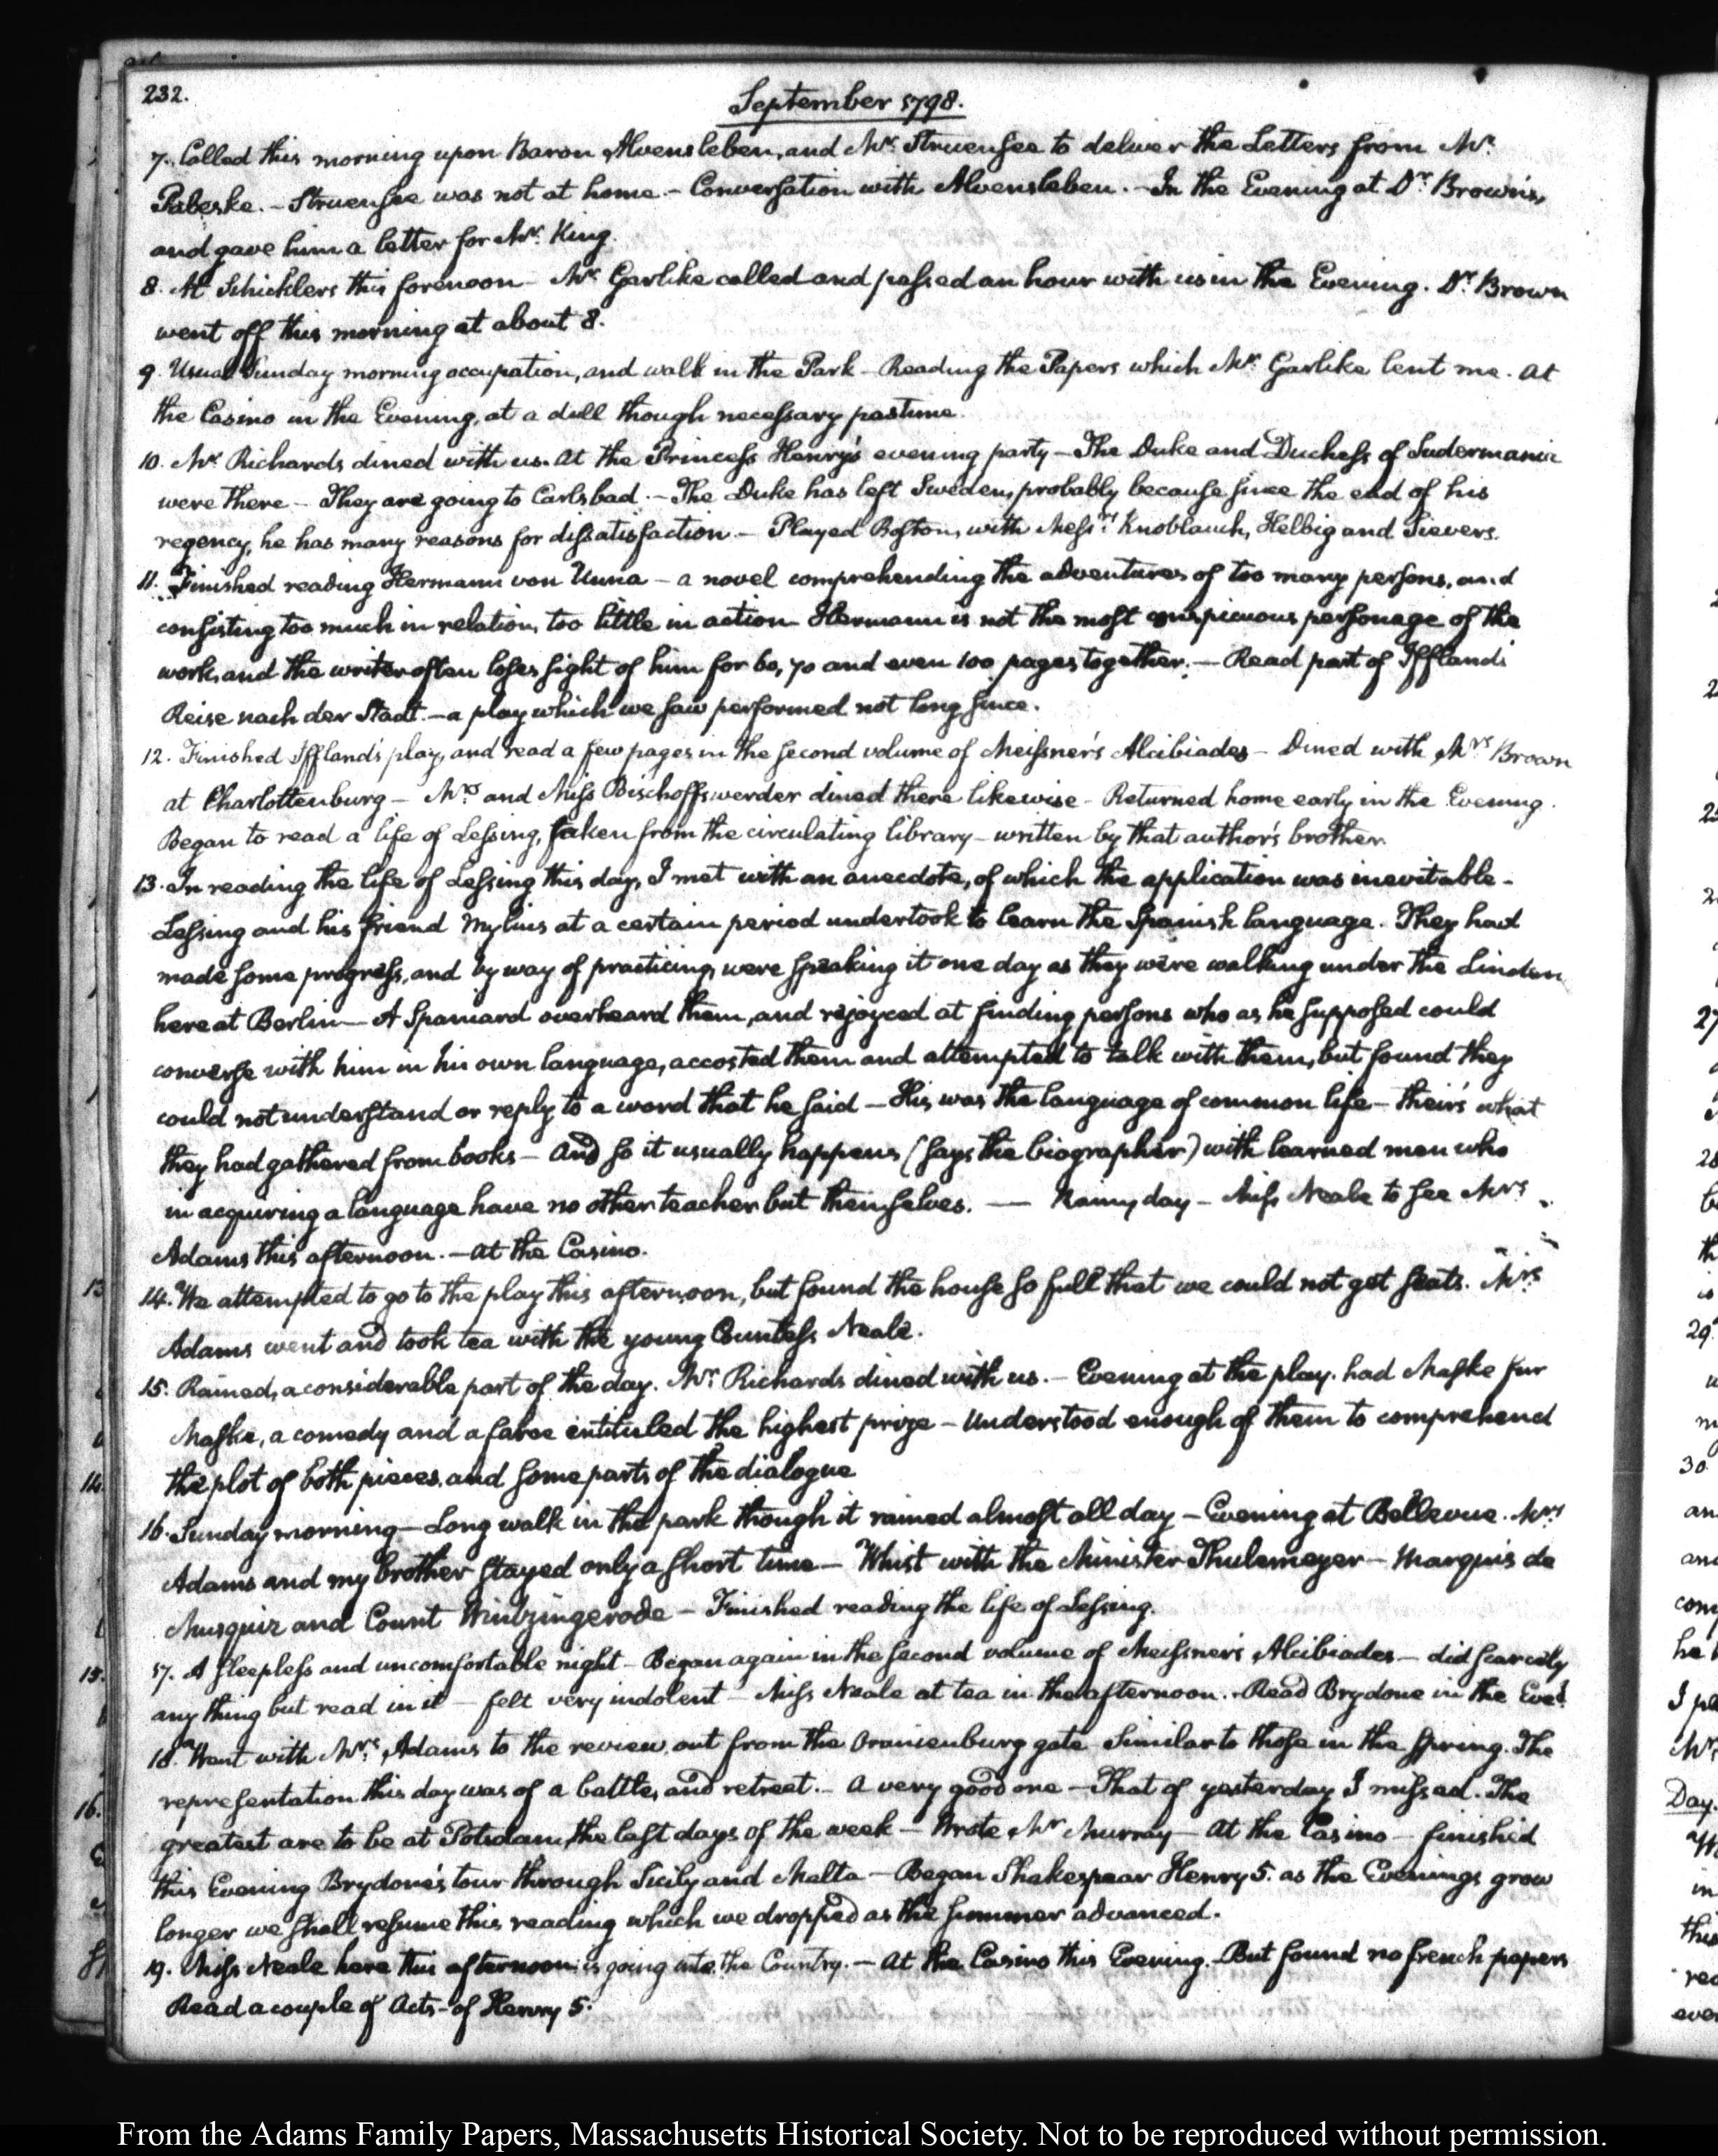 232.
September 1798.
7. Called this morning upon Baron Alvensleben, and Mr. Struensee to deliver the Letters from Mr.
Paleske. - Struensee was not at home. - Conversation with Alvensleben. - In the Evening at Dr. Brown's,
and gave him a letter for Mr. King.
8. At Schicklers this forenoon - Mr. Garlike called and passed an hour with us in the Evening. Dr. Brown
went off this morning at about 8.
9. Usual Sunday morning occupation, and walk in the Park - Reading the Papers which Mr. Garlike lent me. At
the Casino in the Evening, at a dull though necessary pastime.
10. Mr. Richards dined with us. At the Princess Henry's evening party - The Duke and Duchess of Sudermania
were there - They are going to Carlsbad. - The Duke has left Sweden, probably because since the end of his
regency, he has many reasons for dissatisfaction - Played Boston, with Messrs. Knoblauch, Helbig and Sievers.
11. Finished reading Hermann von Unna - a novel comprehending the adventures of too many persons, and
consisting too much in relation, too little in action Hermann is not the most conspicuous personage of the
work, and the writer often loses sight of him for 60, 70 and even 100 pages together. - Read part of Iffland's
Reise nach der Stadt. - a play which we saw performed not long since.
12. Finished Iffland's play, and read a few pages in the second volume of Meissner's Alcibiades - Dined with Mrs Brown
at Charlottenburg - Mrs and Miss Bischoffswerder dined there likewise - Returned home early in the Evening.
Began to read a life of Lessing, taken from the circulating library - written by that author's brother.
13. In reading the life of Lessing this day, I met with an anecdote, of which the application was inevitable -
Lessing and his friend Mylius at a certain period undertook to learn the Spanish language. They had
made some progress, and by way of practicing, were speaking it one day as they were walking under the Linden
here at Berlin - A Spaniard overheard them, and rejoyced at finding persons who as he supposed could
converse with him in his own language, accosted them and attempted to talk with them, but found they
could not understand or reply to a word that he said - His was the language of common life - theirs what
they had gathered from books - And so it usually happens (says the biographer) with learned men who
in acquiring a language have no other teacher but themselves. - Rainy day - Miss Neale to see Mrs
Adams this afternoon. - At the Casino.
14. We attempted to go to the play this afternoon, but found the house so full that we could not get seats. Mrs.
Adams went and took tea with the young Countess Neale.
15. Rained, a considerable part of the day. Mr. Richards dined with us. - Evening at the play. had Maske für
Maske, a comedy and a farce entituled the highest prize - Understood enough of them to comprehend
the plot of both pieces, and some parts of the dialogue
16. Sunday morning - Long walk in the park though it rained almost all day - Evening at Bellevue. Mrs.
Adams and my brother stayed only a short time - Whist with the Minister Thulemeyer - Marquis de
Musquiz and Count Wintzingerode - Finished reading the life of Lessing.
17. A sleepless and uncomfortable night - Began again in the second volume of Meissner's Alcibiades - did scarcely
any thing but read in it - felt very indolent - Miss Neale at tea in the afternoon. Read Brydone in the Eveg.
18. Went with Mrs. Adams to the review, out from the Oranienburg gate Similar to those in the spring. The
representation this day was of a battle, and retreat. - A very good one - That of yesterday I missed. The
greatest are to be at Potsdam, the last days of the week - Wrote Mr Murray - At the Casino - finished
this Evening Brydone's tour through Sicily and Malta - Began Shakespear Henry 5. as the Evenings grow
longer we shall resume this reading which we dropped as the summer advanced.
19. Miss Neale here this afternoon: is going into the Country. - At the Casino this Evening. But found no french papers
Read a couple of Acts of Henry 5.
From the Adams Family Papers, Massachusetts Historical Society. Not to be reproduced without permission.